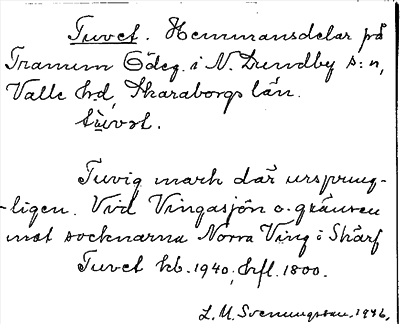 Tuvet. Hemmansdelar på
Tramm Ödeg. i N. Lundby s:n,
Valle hd, Skaraborgs län.
tùvət.
Tuvig mark där ursprung-
-ligen. Vid Vingasjön o. gränsen
mot socknarna Norra Ving i Skärf
Tuvet kb. 1940, hfl. 1800.
L. M. Svenungsson, 1946.